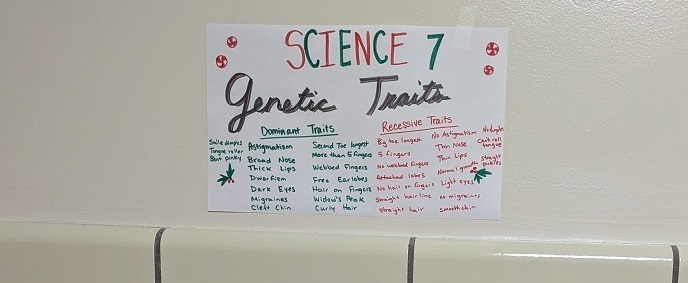 SCIENCE 7
Genetic Traits
Dominant Traits
Smile dimples
Tongue roller
Bent pinky
Astigmatism
Broad Nose
Thick Lips
Dwarfism
Dark Eyes
Migraines
Cleft Chin
Second Toe longest
More than 5 fingers
Webbed Fingers
Free Earlobes
Hair on Fingers
Widow's Peak
Curly Hair
Recessive Traits
Big toe longest
5 fingers
No webbed fingers
Attached lobes
No hair on fingers
Straight hair line
Straight hair
No Astigmatism
Thin Nose
Thin Lips
Normal
Light eyes
No migraines
smooth chin
No dimples
Can't roll
tongue
Straight
pinkies